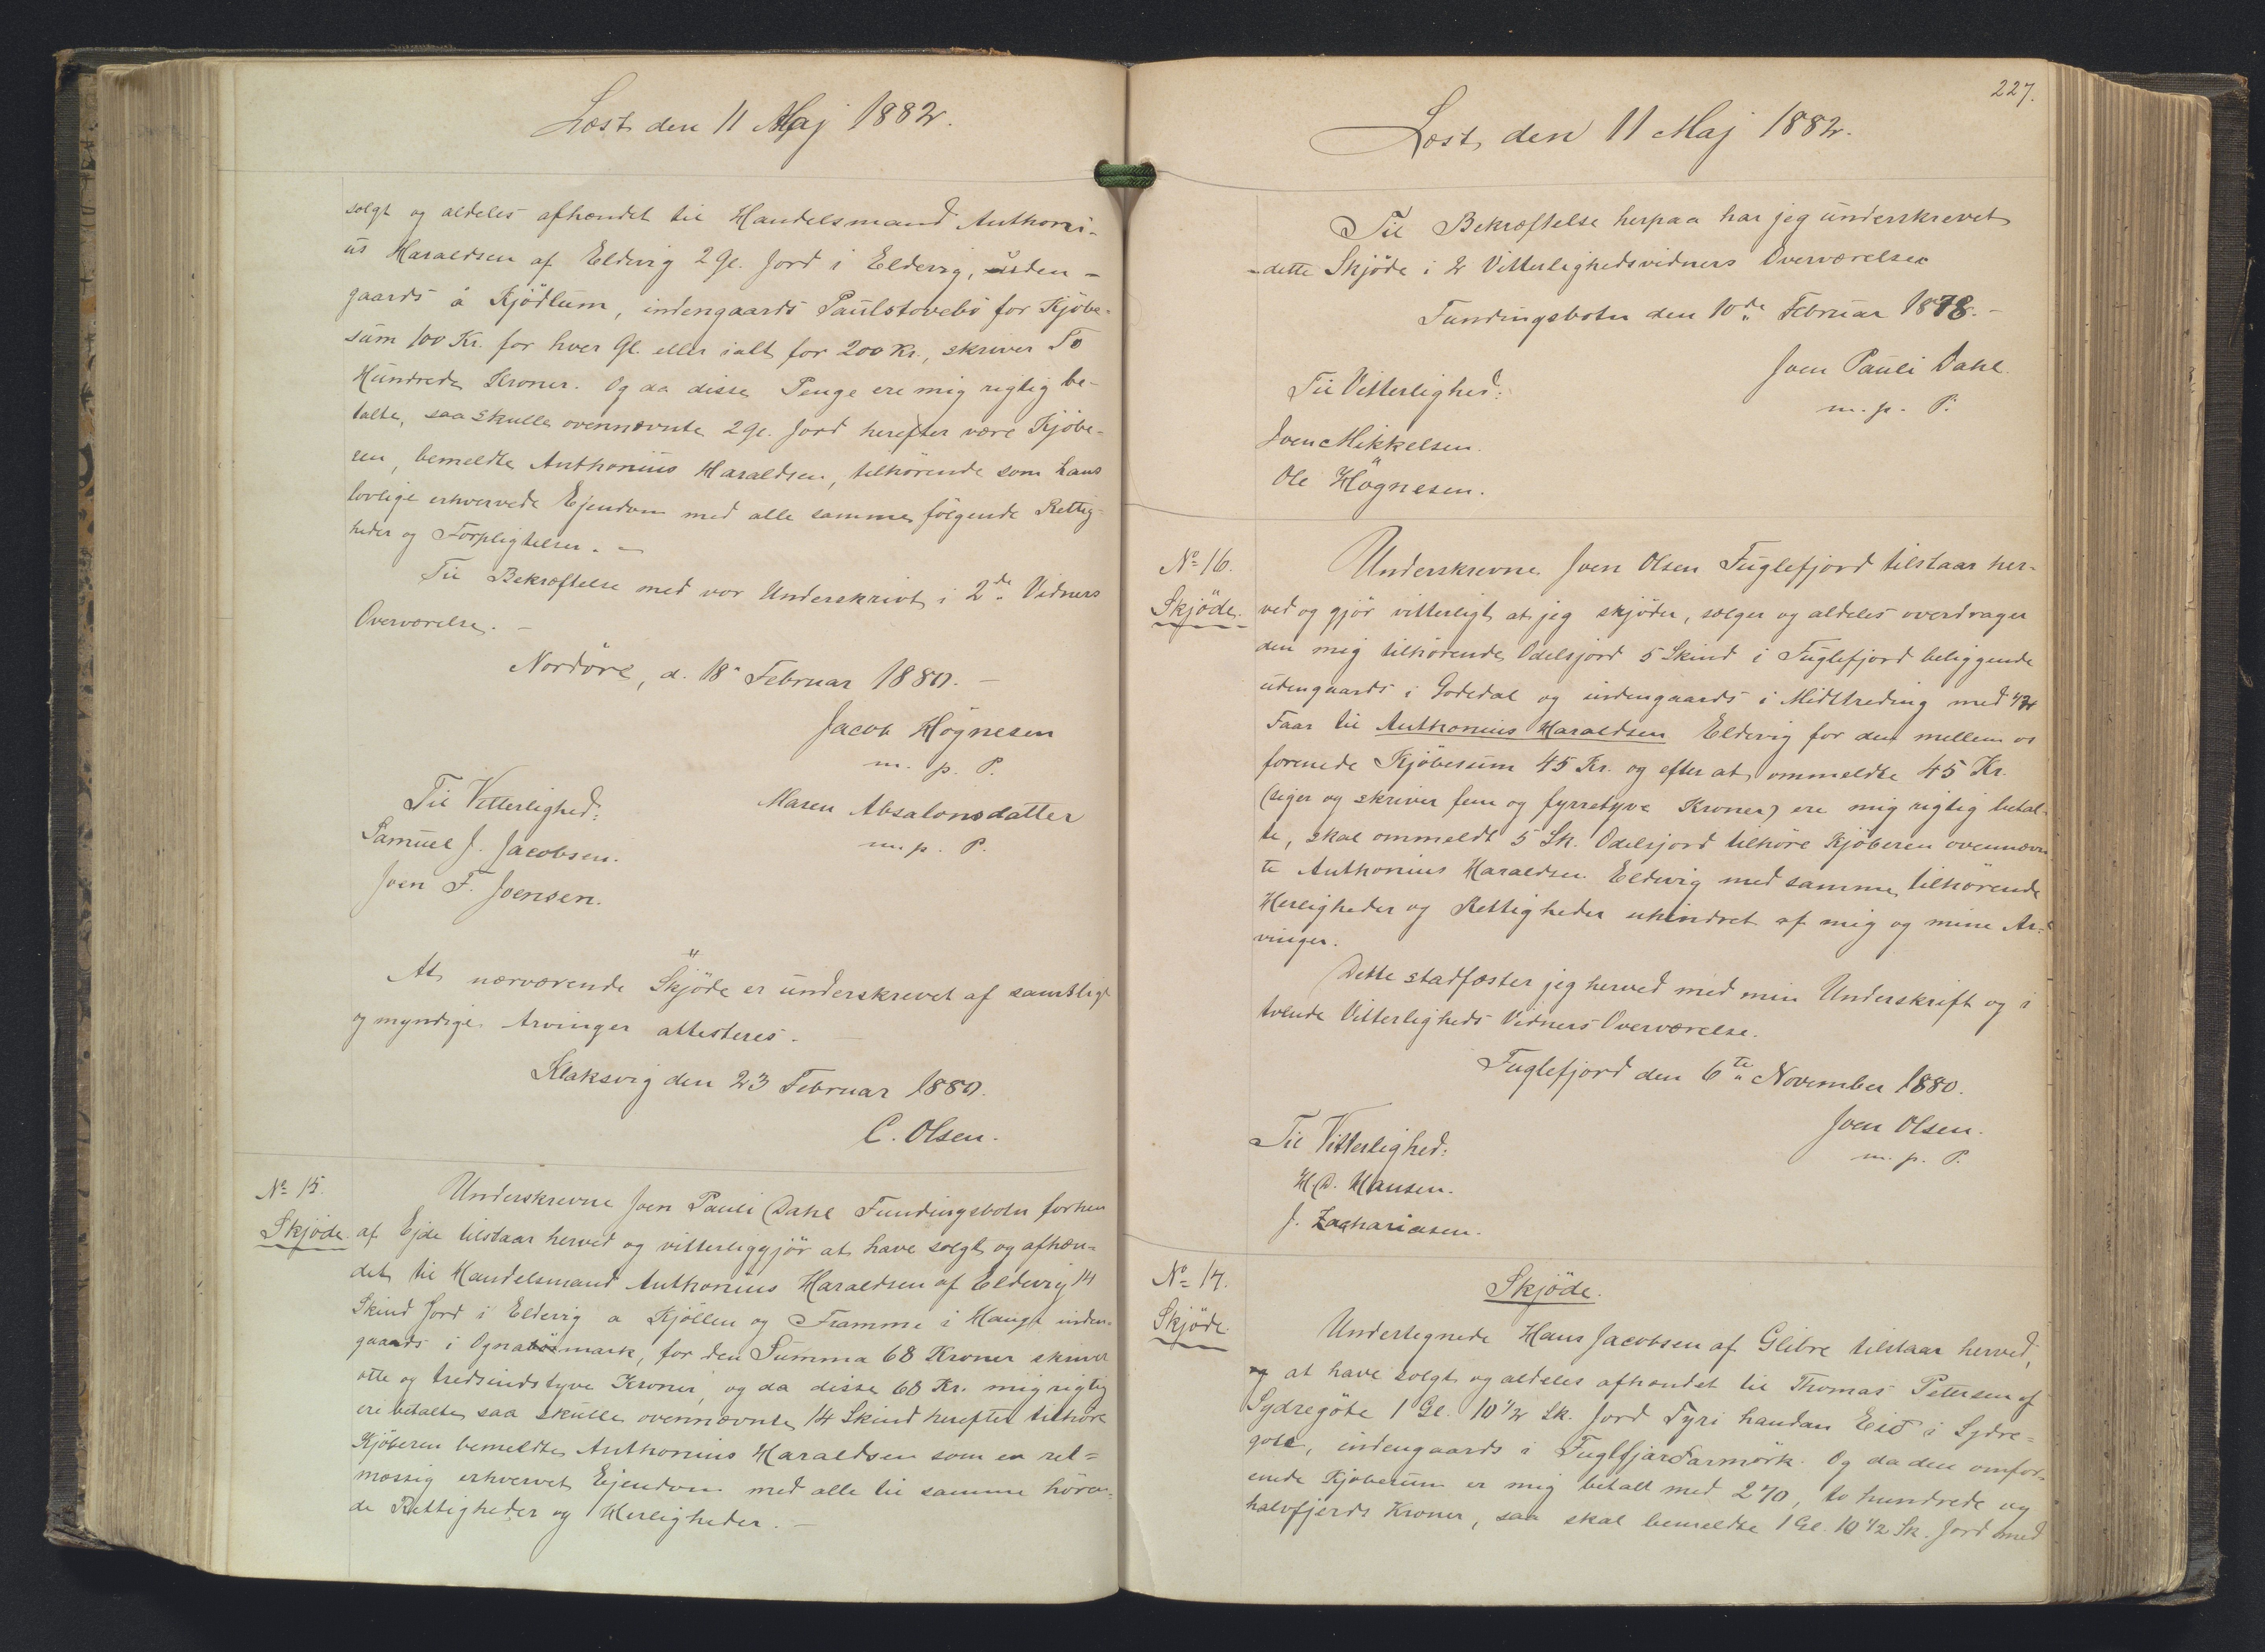 Læst den 11 Maj 1882.
solgt og aldeles afhændet til Handelsmand Anthoni-
us Haraldsen af Eldevig 2 Gl. Jord i Eldevig, uden-
gaards á Kjödlum, indengaards Paulstovebö for Kjöbe-
sum 100 Kr. for hver Gl. eller ialt for 200 Kr., skriver To
Hundrede Kroner. Og da disse Penge ere mig rigtig be-
talte, saa skulle ovennævnte 2 Gl. Jord herefter være Kjöbe-
ren, bemeldte Anthonius Haraldsen, tilhörende som hans
lovlige erhvervede Ejendom med alle samme fölgende Rettig-
heder og Forpligtelser. —
Til Bekræftelse med vor Underskrivt i 2de Vidners
Overværelse. —
Nordöre, d. 18 Februar 1880. —
Jacob Högnesen
m. p. P.
Til Vitterlighed:
Maren Absalonsdatter
m. p. P.
Samuel J. Jacobsen.
Joen F. Joensen.
At nærværende Skjöde er underskrevet af samtlige
og myndige Arvinger attesteres. —
Klaksvig den 23 Februar 1880.
C. Olsen.
No 15.
Skjöde.
Underskrevne Joen Pauli Dahl Fundingsbotn forhen
af Ejde tilstaar herved og vitterliggjör at have solgt og afhæn-
det til Handelsmand Anthonius Haraldsen af Eldevig 14
Skind Jord i Eldevig a Kjöllen og Framme i Haugt inden-
gaards i mark, for den Summa 68 Kroner skriver
otte og tredsindstyve Kroner, og da disse 68 Kr. mig rigtig
ere betalte saa skulle ovennævnte 14 Skind herefter tilhöre
Kjöberen bemeldte Anthonius Haraldsen som en ret-
mæssig erhvervet Ejendom med alle til samme hören-
de Rettigheder og Herligheder. —
227.
Læst den 11 Maj 1882.
Til Bekræftelse herpaa har jeg underskrevet
dette Skjöde i 2 Vitterlighedsvidners Overværelse
Fundingsbotn den 10de Februar 1878. —
Joen Pauli Dahl.
m. p. P.
Til Vitterlighed:
Joen Mikkelsen.
Ole Högnesen.
No 16.
Skjöde.
Underskrevne Joen Olsen Fuglefjord tilstaar her-
ved og gjör vitterligt at jeg skjöder, sælger og aldeles overdrager
den mig tilhörende Odelsjord 5 Skind i Fuglefjord beliggende
udengaards i Godedal og indengaards i Midttreding med
Faar til Anthonius Haraldsen Eldevig for den mellem os
forenede Kjöbesum 45 Kr. og efter at ommeldte 45 Kr.
(siger og skriver fem og fyrretyve Kroner) ere mig rigtig betal-
te, skal ommeldt 5 Sk. Odelsjord tilhöre Kjöberen ovennævn
te Anthonius Haraldsen Eldevig med samme tilhörende
Herligheder og Rettigheder uhindret af mig og mine Ar-
vinger.
Dette stadfæster jeg herved med min Underskrift og i
tvende Vitterligheds Vidners Overværelse.
Fuglefjord den 6te November 1880.
Joen Olsen.
m. p. P.
Til Vitterlighed:
H. D. Hansen.
J. Zachariasen.
No 17.
Skjöde
Skjöde.
Undertegnede Hans Jacobsen af Glibre tilstaar herved,
og at have solgt og aldeles afhændet til Thomas Petersen af
Sydregöte 1 Gl. 10 1/2 Sk. Jord Fyri handan Eið i Sydre-
göte, indengaards i Fuglfjardarmörk. Og da den omfor-
enede Kjöbesum er mig betalt med 270, to hundrede og
halvfjerds Kroner, saa skal bemeldte 1 Gl. 10 1/2 Sk. Jord med